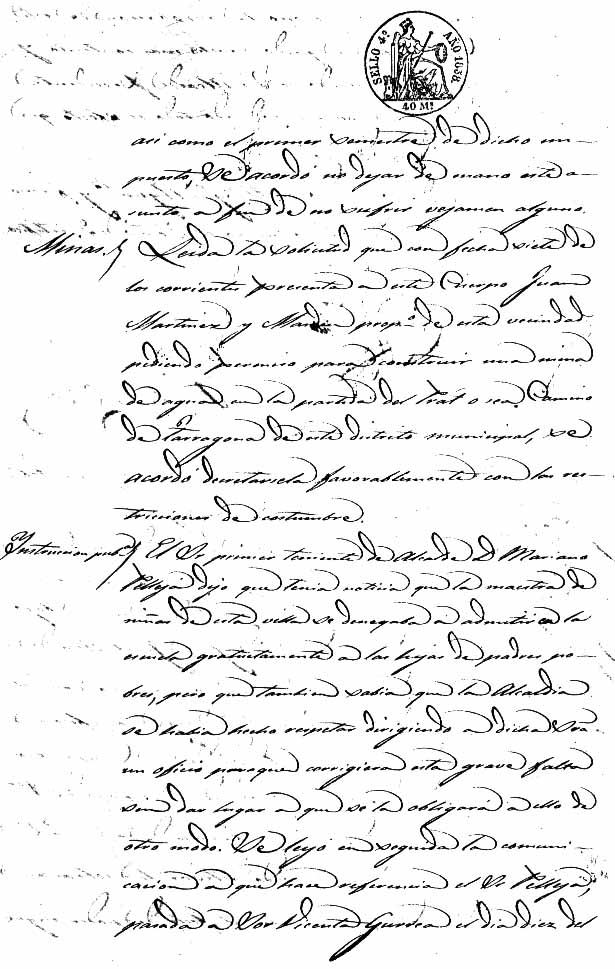 SELLO 4º AÑO 1858.
40 Ms
asi como el primer semestre de dicho im-
puesto, se acordó no dejar de mano este a-
sunto a fin de no sufrir vejamen alguno.
Minas. Leida la solicitud que con fecha siete de
los corrientes presenta a este Cuerpo Juan
Martinez y propº de esta vecindad
pidiendo permiso para construir una mina
de agua en la partida del Prat o sea Camino
de Tarragona de este distrito municipal, se
acordó decretarsela favorablemente con las res-
triciones de costumbre.
Instruccion pubª El Sr primer teniente de Alcalde D. Mariano
Pelleja dijo que tenia noticia que la maestra de
niñas de esta villa se denegaba a admitir en la
escuela gratuitamente a las hijas de padres po-
bres, pero que tambien sabia que la Alcaldia
se habia hecho respetar dirigiendo a dicha Sra
un oficio para que corrigiera esta grave falta
sin dar lugar a que se la obligará a ello de
otro modo. Se leyó en seguida la comuni-
cacion a que hace referencia el Sr Pelleja,
pasada a Sor Vicenta Gurrea el dia diez del